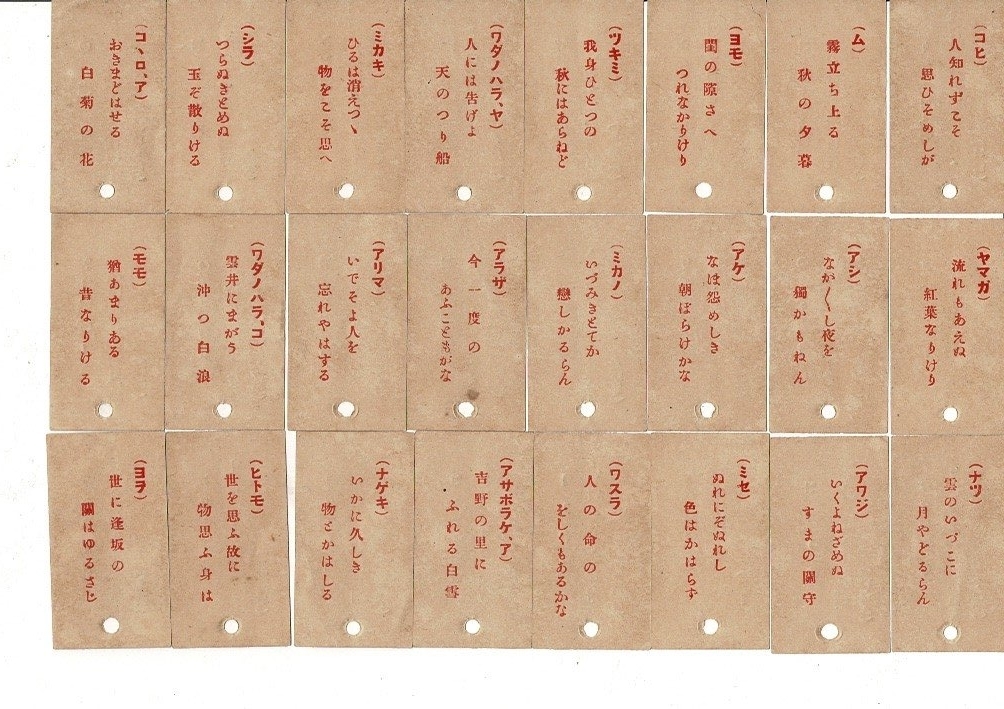 (コヒ)
人知れずこそ
思ひそめしが
(ム)
霧立ち上る
秋の夕暮
(ヨモ)
閨の隙さへ
つれなかりけり
(ツキミ)
我身ひとつの
秋にはあらねど
(ワダノハラ、ヤ)
人には告げよ
天のつり船
(ミカキ)
ひるは消えつゝ
物をこそ思へ
(シラ)
つらぬきとめぬ
玉ぞ散りける
(コヽロ、ア)
おきまどはせる
白菊の花
(ヤマガ)
流れもあえぬ
紅葉なりけり
(アシ)
なが〱し夜を
獨かもねん
(アケ)
なほ怨めしき
朝ぼらけかな
(ミカノ)
いづみきとてか
戀しかるらん
(アラザ)
今一度の
あふこともがな
(アリマ)
いでそよ人を
忘れやはする
(ワダノハラ、コ)
雲井にまがう
沖つ白浪
(モモ)
猶あまりある
昔なりける
(ナツ)
雲のいづこに
月やどるらん
(アワジ)
いくよねざめぬ
すまの關守
(ミセ)
ぬれにぞぬれし
色はかはらず
(ワスラ)
人の命の
をしくもあるかな
(アサボラケ、ア)
吉野の里に
ふれる白雪
(ナゲキ)
いかに久しき
物とかはしる
(ヒトモ)
世を思ふ故に
物思ふ身は
(ヨヲ)
世に逢坂の
關はゆるさじ